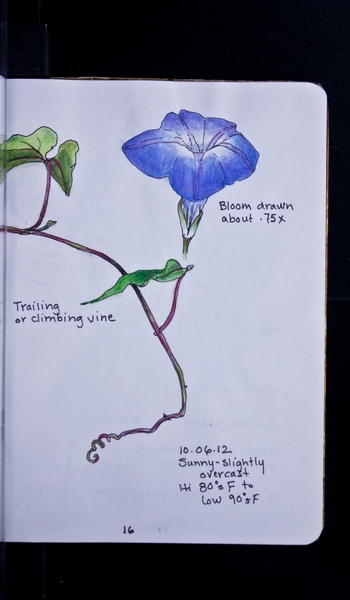 Bloom drawn
about .75x
Trailing
or climbing vine
10.06.12
Sunny-slightly
overcast
Hi 80's F to
low 90's F
16